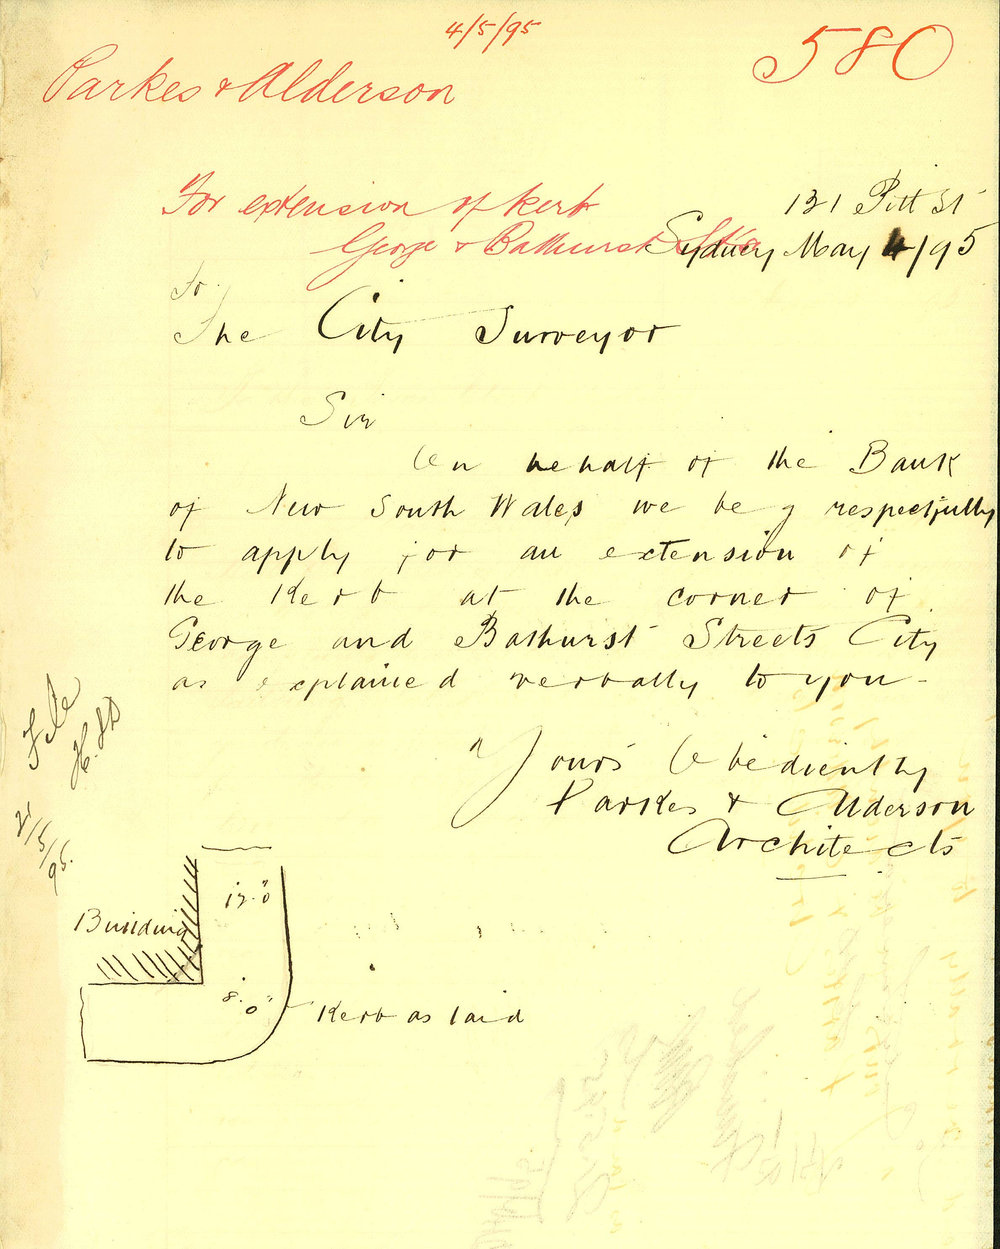 4/5/95
580
Parkes & Alderson
For extension of kerb
George & Bathurst Sts
131 Pitt St
Sydney May 4/95
To
The City Surveyor
Sir
On behalf of the Bank
of New South Wales we beg respectfully
to apply for an extension of
the Kerb at the corner of
George and Bathurst Streets City
as explained verbally to you -
Yours Obediently
Parkes & Alderson
Architects
File
21/5/95.
Building
12'.0"
8'.0"
Kerb as laid